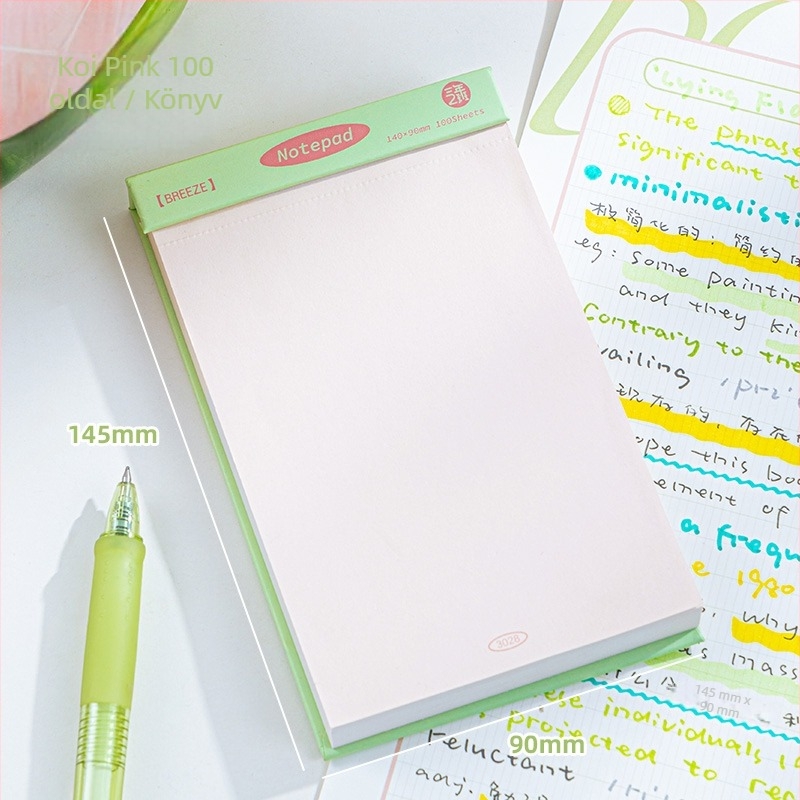 Koi Pink 100
oldal / Könyv
Notepad
140*90mm 100Sheets
【BREEZE】
145mm
90mm
3028
145 mm x
90 mm
The phrase
significant t
minimalisti
极简化的: 简约
eg: some paintin
and they ki
Contrary to the
vailing
现存的, 存在
pe this boo
ement of
a frequ
e 1980
why
s mass
ese individuals
projected to re
reluctant
adj.